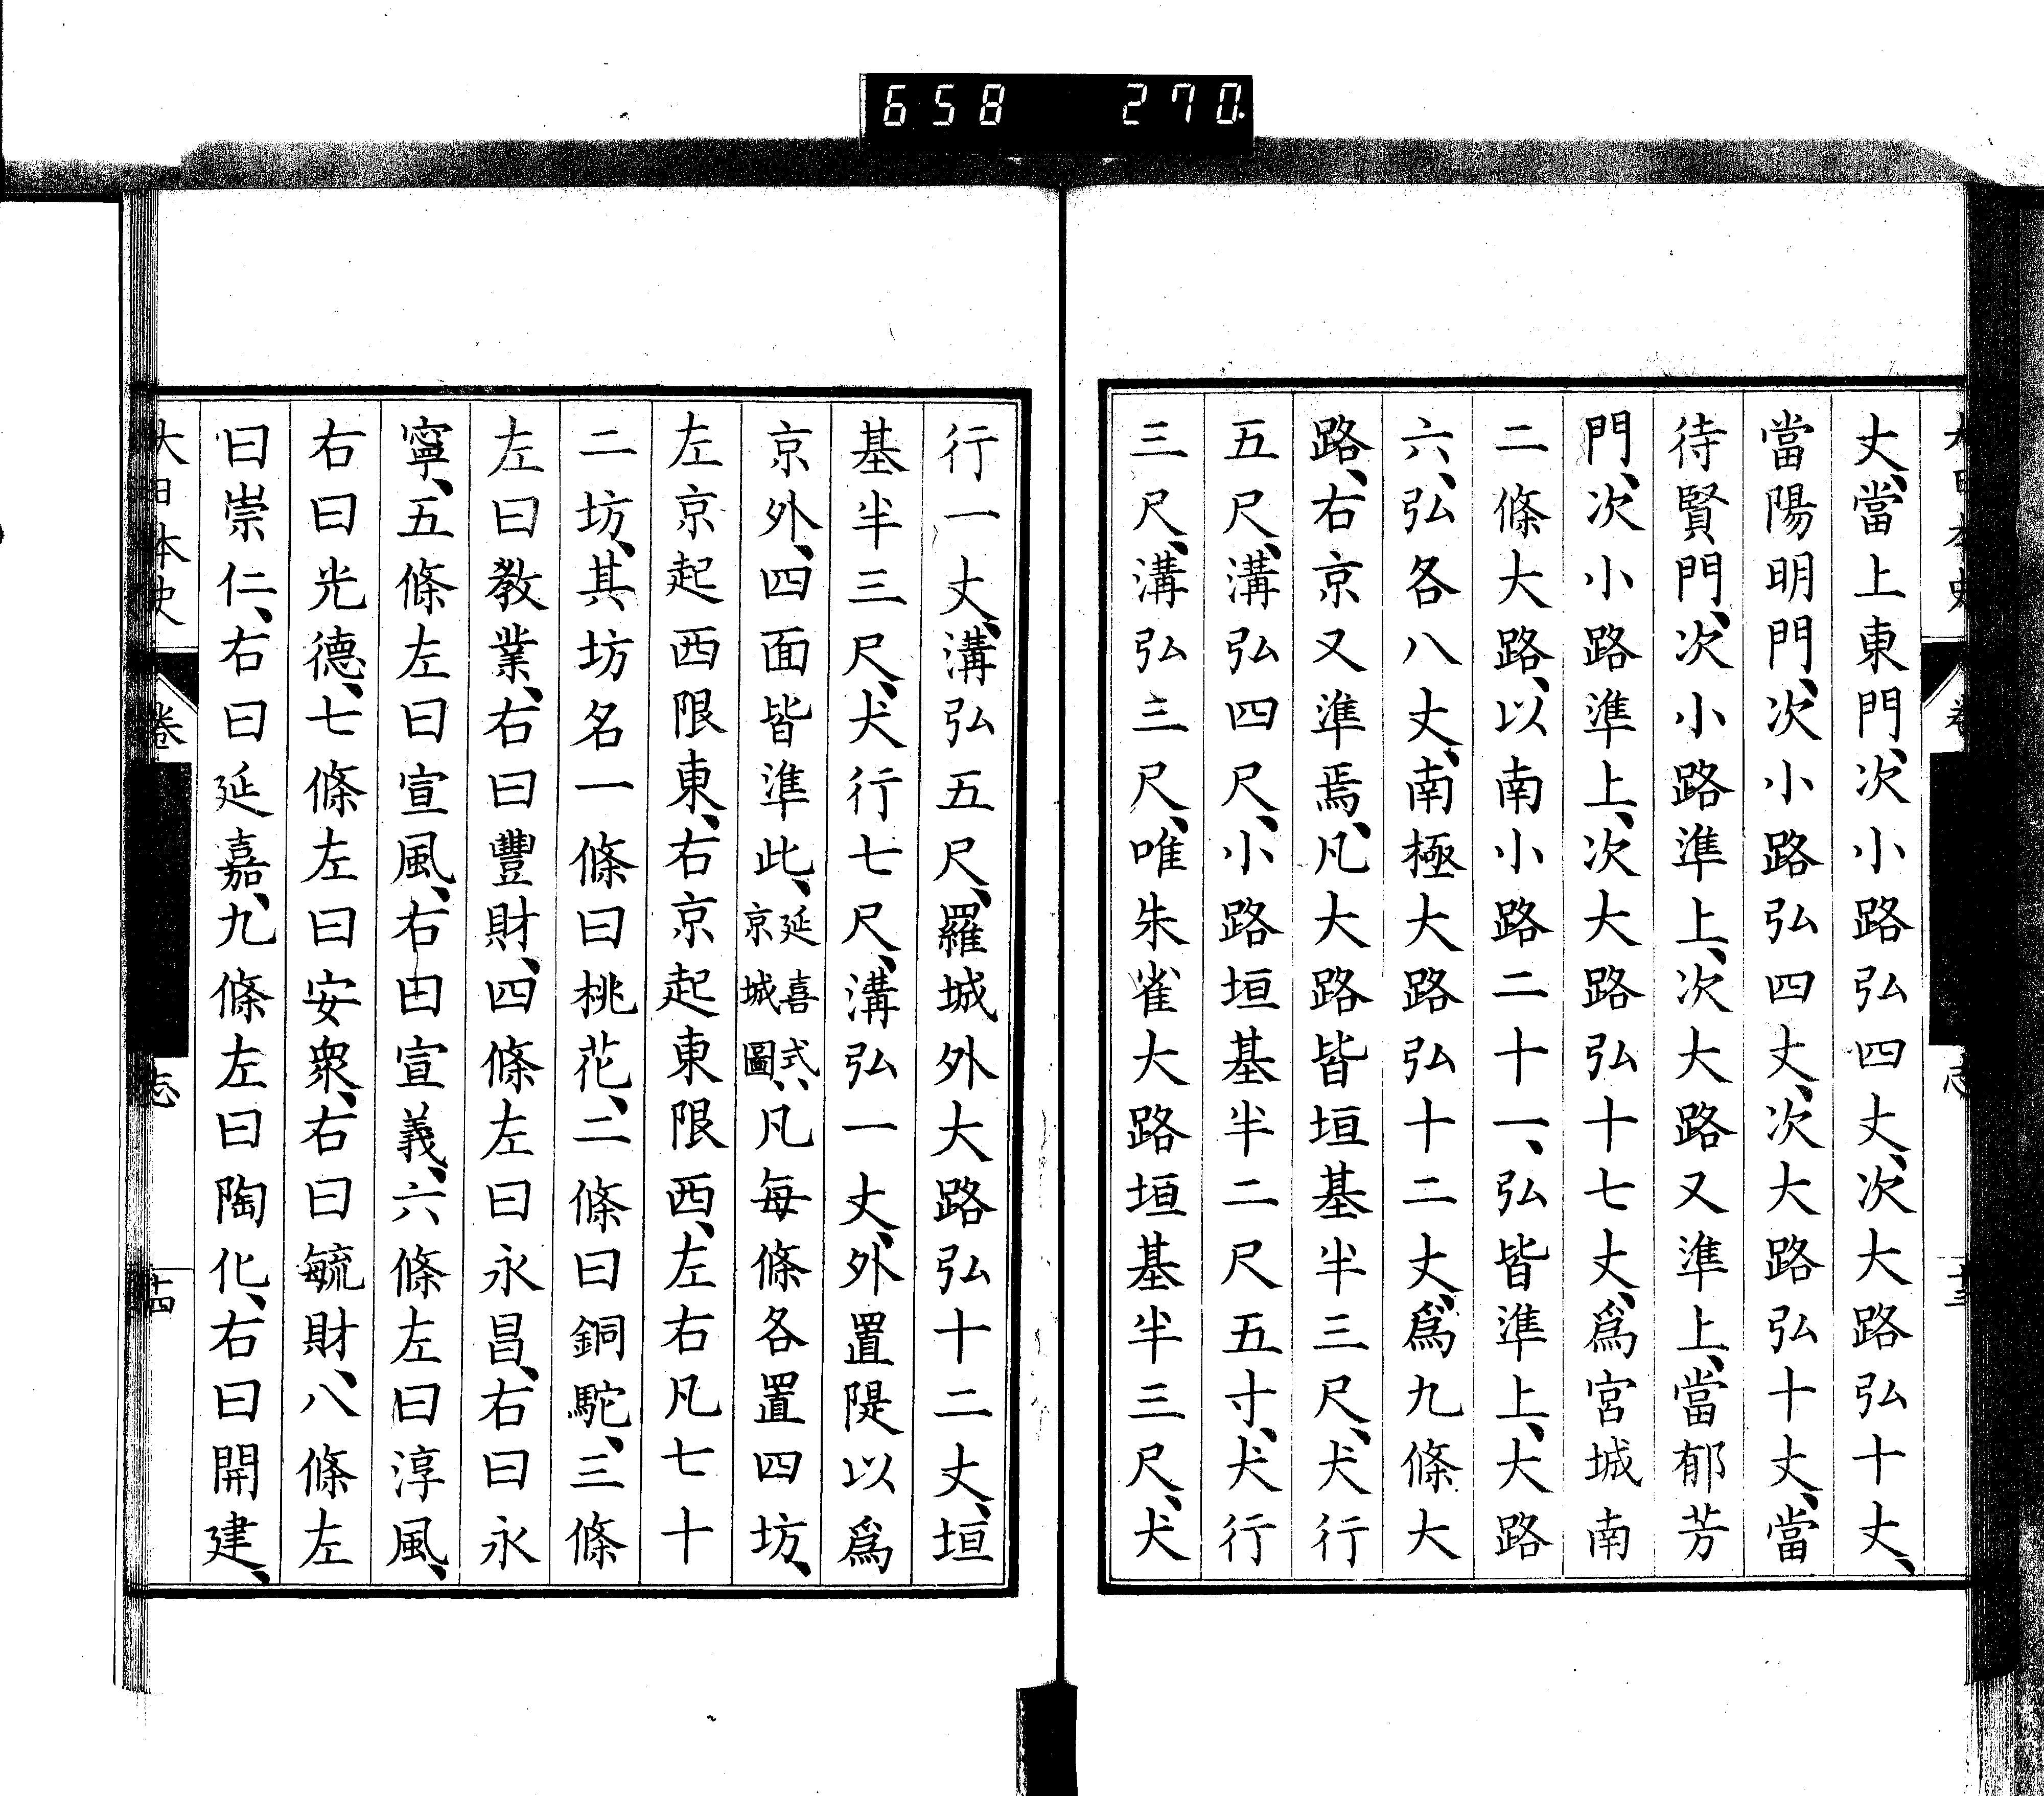 658 270
大日本史 卷 志 十三
丈、當上東門、次小路弘四丈、次大路弘十丈、
當陽明門、次小路弘四丈、次大路弘十丈、當
待賢門、次小路準上、次大路又準上、當郁芳
門、次小路準上、次大路弘十七丈、爲宮城南
二條大路、以南小路二十一、弘皆準上、大路
六、弘各八丈、南極大路弘十二丈、爲九條大
路、右京又準焉、凡大路皆垣基半三尺、犬行
五尺、溝弘四尺、小路垣基半二尺五寸、犬行
三尺、溝弘三尺、唯朱雀大路垣基半三尺、犬
行一丈、溝弘五尺、羅城外大路弘十二丈、垣
基半三尺、犬行七尺、溝弘一丈、外置隄以爲
京外、四面皆準此、延喜式、京城圖、凡每條各置四坊、
左京起西限東、右京起東限西、左右凡七十
二坊、其坊名一條曰桃花、二條曰銅駝、三條
左曰教業、右曰豐財、四條左曰永昌、右曰永
寧、五條左曰宣風、右曰宣義、六條左曰淳風、
右曰光德、七條左曰安衆、右曰毓財、八條左
曰崇仁、右曰延嘉、九條左曰陶化、右曰開建、
大日本史 卷 志 十四